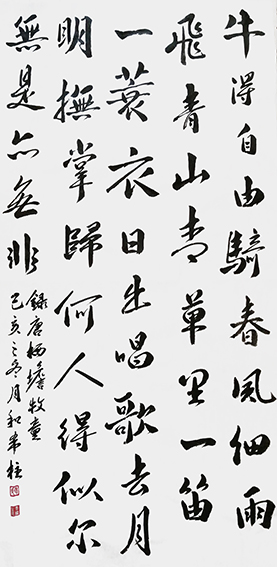 牛得自由騎春風细雨
飛青山青草里一笛
一蓑衣日出唱歌去月
明撫掌歸何人得似尔
無是亦無非
錄唐栖蟾牧童
己亥之冬月和